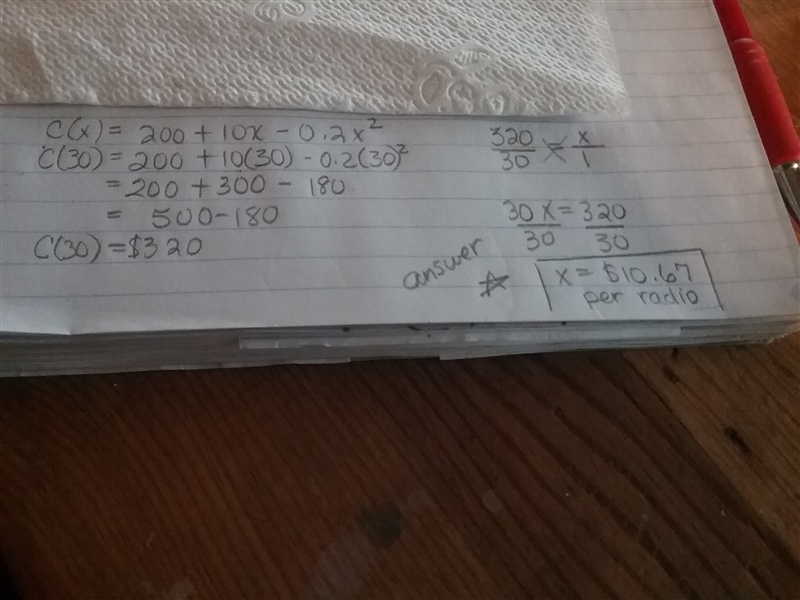 C(x) = 200 + 10x - 0.2x²
C(30) = 200 + 10(30) - 0.2(30)²
= 200 + 300 - 180
= 500 - 180
C(30) = $320
320/30 = x/1
30x/30 = 320/30
answer
x = $10.67
per radio